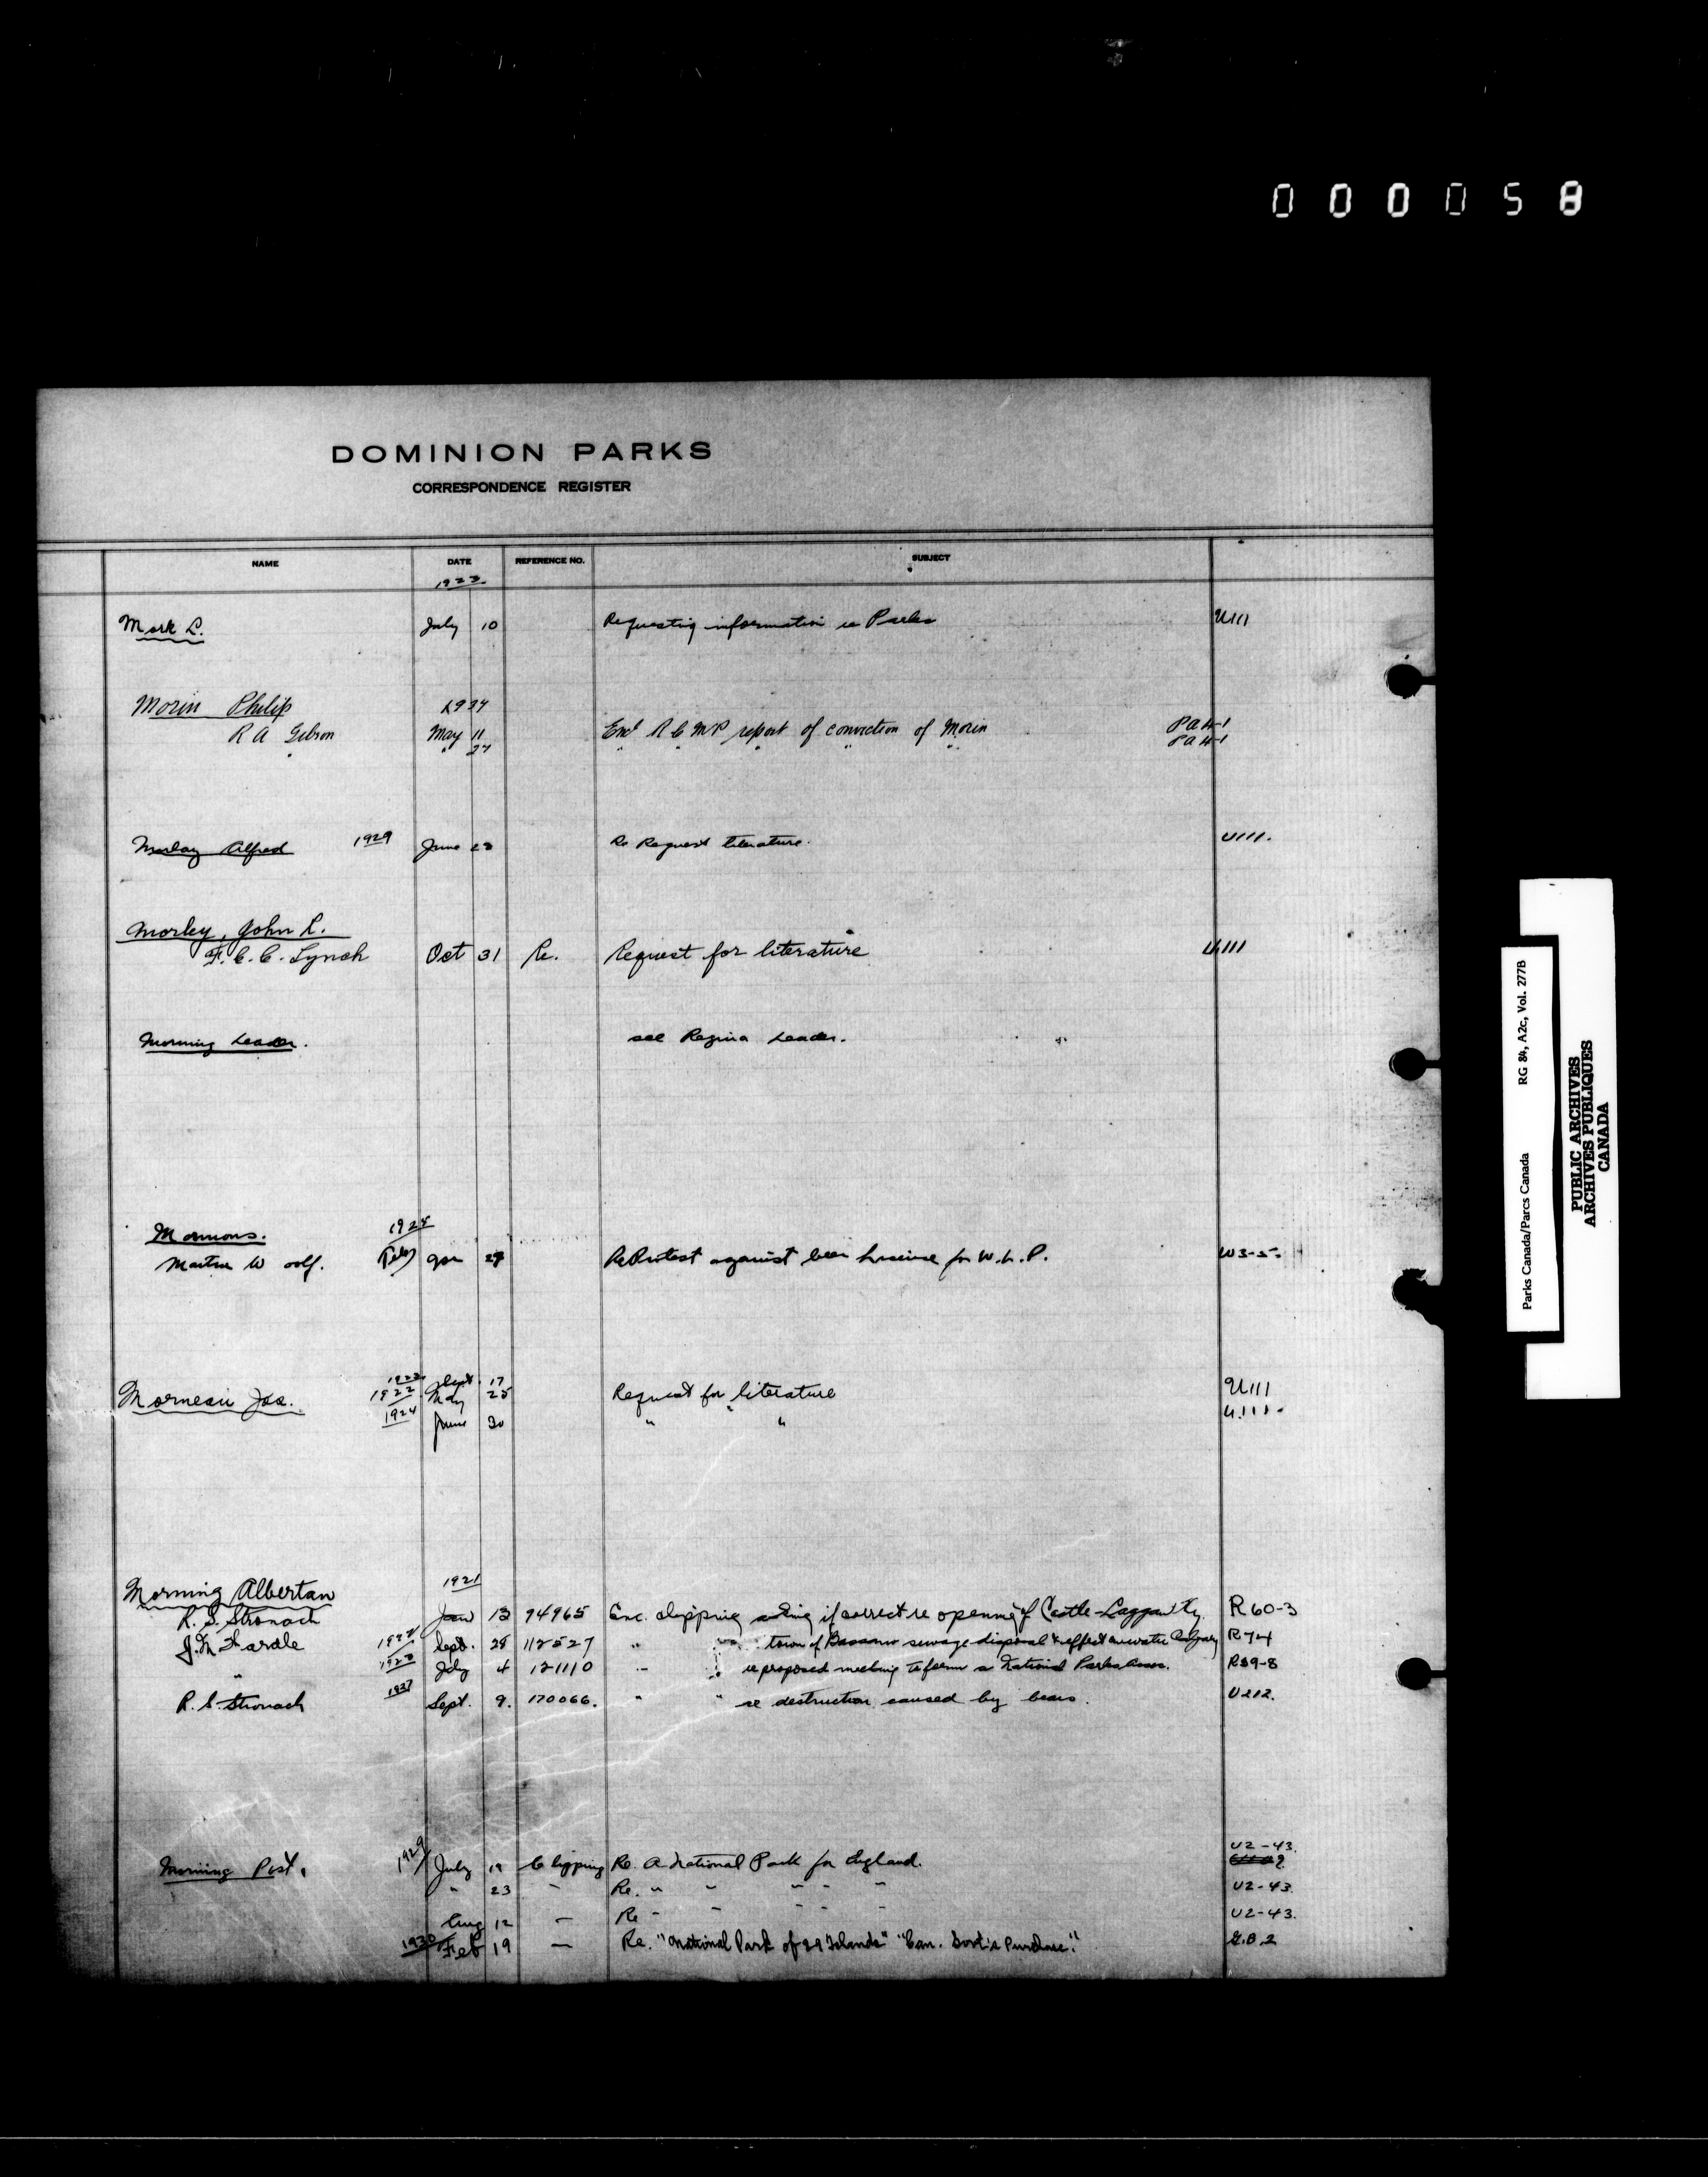 000058
DOMINION PARKS
CORRESPONDENCE REGISTER
NAME DATE REFERENCE NO. SUBJECT
1923
Mork L. July 10 Requesting information re Parks U111
Morin Philip 1934
R A Gibson May 11 Encl R C M P report of conviction of Morin PA4-1
" 27 " " " " " PA4-1
Morlay Alfred 1929 June Re Request literature. U111.
Morley, John R.
F. C. C. Lynch Oct 31 Re. Request for literature U111
Morning Leader. see Regina Leader.
Mormons. 1925
W Jan 27 Re Protest against beer license for W.L.P. W3-5.
Sept. 17
Morneau Jos. 1922 May 25 Request for literature U111
1924 June 30 " " U.111.
Morning Albertan 1921
R. S. Stronach Jan 13 74965 Enc. clipping asking if correct re opening of Castle-Laggan Hy. R60-3
J. M. Wardle Sept. 28 112527 " town of Bassano sewage disposal & effect on water Calgary R74
" 1923 July 4 121110 " re proposed meeting to form a National Parks Assn. R39-8
R. S. Stronach 1927 Sept. 9. 170066. " " re destruction caused by bears. U212.
U2-43.
Morning Post, 1929 July 19 Clipping Re. A National Park for England.
" 23 " Re. " " " " " U2-43.
Aug 12 — Re " " " " " U2-43.
1930 Feb 19 — Re. "National Park of 29 Islands" "Can. Govt's Purchase." G.B.2
Parks Canada/Parcs Canada RG 84, A2c, Vol. 277B
PUBLIC ARCHIVES
ARCHIVES PUBLIQUES
CANADA